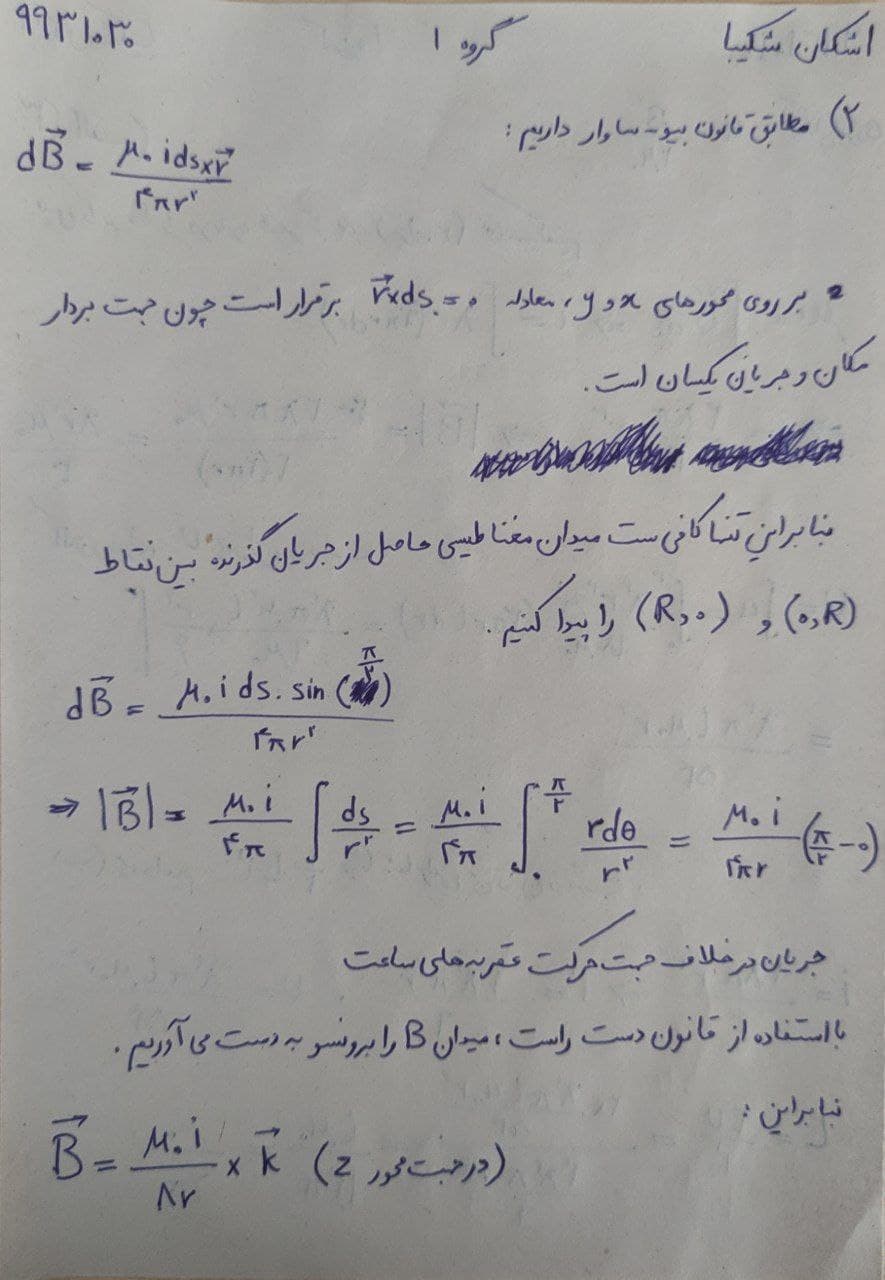 اشکان شکیبا گروه ۱ ۹۹۳۱۰۳۰
۲) مطابق قانون بیو-ساوار داریم:
dB⃗ = μ۰ i ds×r⃗ / ۴πr²
• بر روی محورهای x و y، معادله r⃗×ds = ۰ برقرار است چون جهت بردار
مکان و جریان یکسان است.
بنابراین تنها کافی ست میدان مغناطیسی حاصل از جریان گذرنده بین نقاط
(۰,R) و (R,۰) را پیدا کنیم.
dB⃗ = μ۰ i ds. sin(π/۲) / ۴πr²
⇒ |B⃗| = μ۰ i / ۴π ∫ ds/r² = μ۰ i / ۴π ∫₀^(π/۲) rdθ/r² = μ۰ i / ۴πr (π/۲ - ۰)
جریان در خلاف جهت حرکت عقربه های ساعت
با استفاده از قانون دست راست، میدان B را برونسو به دست می آوریم.
بنابراین:
B⃗ = μ۰ i / ۸r × k⃗ (در جهت محور z)